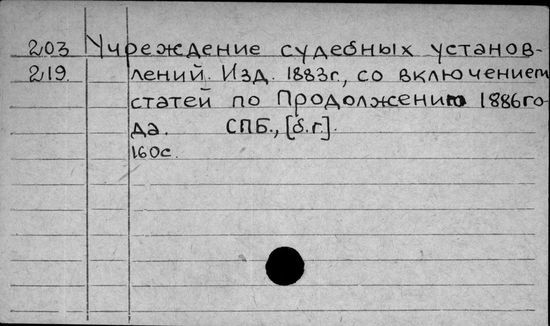 203 Учреждение судебных установ-
219 лений. Изд. 1883г., со включением
статей по Продолжению 1886го-
да. СПБ., [б.г].
160с.